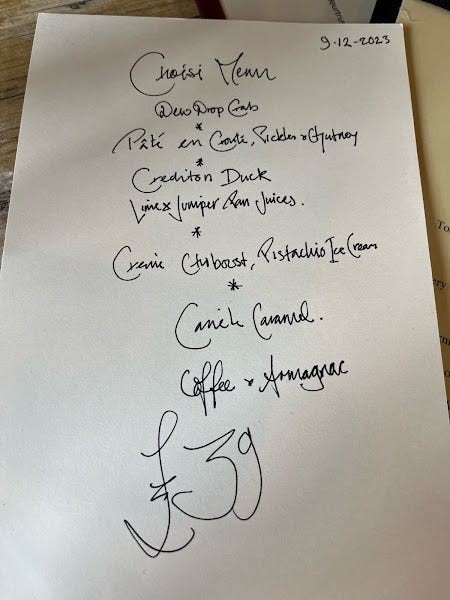 9.12-2023
Choisi Menu
Dew Drop Crab
*
Pâté en Croute, Pickles & Chutney
*
Crediton Duck
Lime & Juniper Pan Juices.
*
Creme Chiboust, Pistachio Ice Cream
*
Canele Caramel.
Coffee & Armagnac
£39